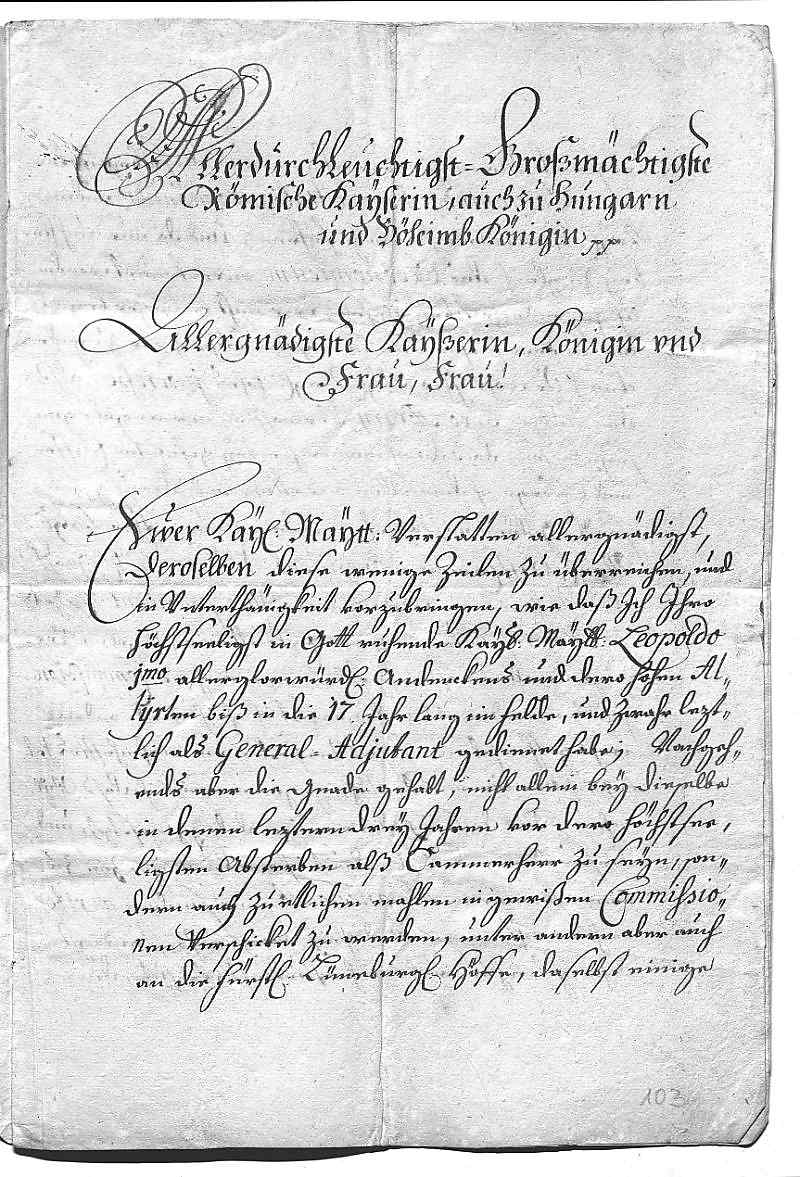 Allerdurchleuchtigst-Großmächtigste
Römische Kayserin, auch zu Hungarn
und Böheimb Königin pp
Allergnädigste Kayßerin, Königin vnd
Frau, Frau!
Ewer Kayl: Maytt: Verstatten allergnädigst,
deroselben diese wenige Zeilen zu überreichen, und
in Vnterthänigkeit vorzubringen, wie daß Ich Ihro
höchstseeligst in Gott ruhende Kayß: Maytt: Leopoldo
jmo allerglorwürdl: Andenckens und dero hohen Al-
lyrten biß in die 17 Jahr lang im felde, und zwahr lezt-
lich als General-Adjutant gedienet habe; Nachgeh-
ends aber die Gnade gehabt, nicht allein bey dieselbe
in denen leztern drey Jahren vor dero höchstsee-
ligsten Absterben alß Cammerherr zu seyn, son-
dern auch zu etlichen mahlen in gewißen Commissio-
nen Verschicket zu werden, unter andern aber auch
an die fürstl: Lüneburgl: Höffe, daselbst einige
103